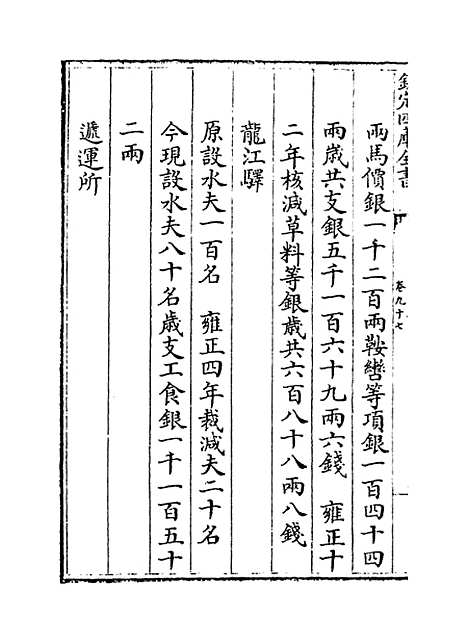 欽定四庫全書
卷九十七
兩馬價銀一千二百兩鞍轡等項銀一百四十四
兩歲共支銀五千一百六十九兩六錢　雍正十
二年核減草料等銀歲共六百八十八兩八錢
龍江驛
原設水夫一百名　雍正四年裁減夫二十名
今現設水夫八十名歲支工食銀一千一百五十
二兩
遞運所